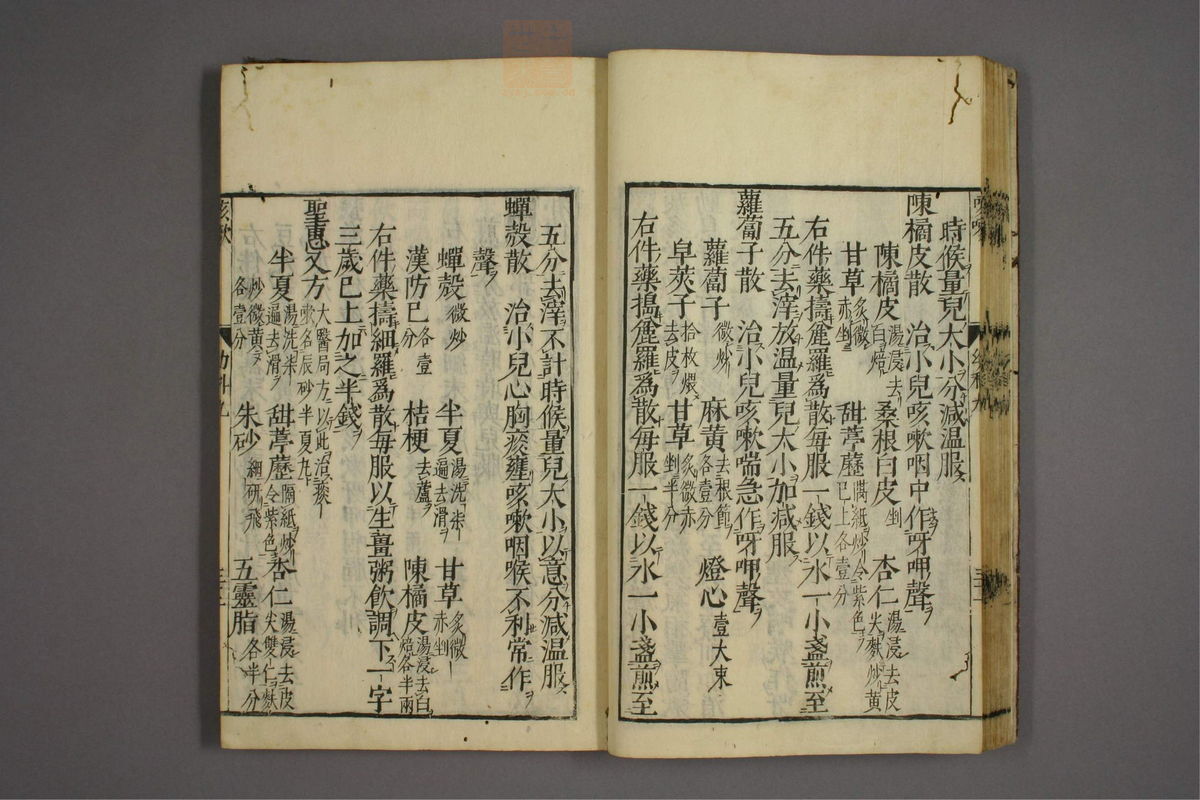 時候量兒大小分減温服
陳橘皮散　治小兒咳嗽咽中作呀呷聲
陳橘皮湯浸去白焙　桑根白皮剉　杏仁湯浸去皮尖麩炒黄
甘草炙微赤剉　甜葶藶隔紙炒令紫色已上各壹分
右件藥擣麄羅爲散毎服一錢以水一小盞煎至
五分去滓放温量兒大小加減服
蘿蔔子散　治小兒咳嗽喘急作呀呷聲
蘿蔔子微炒　麻黄去根節各壹分　燈心壹大束
皁莢子拾枚煨去皮　甘草炙微赤剉半分
右件藥擣麄羅爲散毎服一錢以水一小盞煎至
五分去滓不計時候量兒大小以意分減温服
蟬殼散　治小兒心胸痰壅咳嗽咽喉不利常作
聲
蟬殼微炒　半夏湯洗柒遍去滑　甘草炙微赤剉
漢防巳各壹分　桔梗去蘆　陳橘皮湯浸去白焙各半兩
右件藥擣細羅爲散毎服以生薑粥飲調下一字
三歲巳上加之半錢
聖惠又方大醫局方以此治痰嗽名辰砂半夏丸
半夏湯洗柒遍去滑炒微黄各壹分　甜葶藶隔紙炒令紫色　杏仁湯浸去皮尖雙仁麩
朱砂細研飛　五靈脂各半分
咳嗽　幼科九